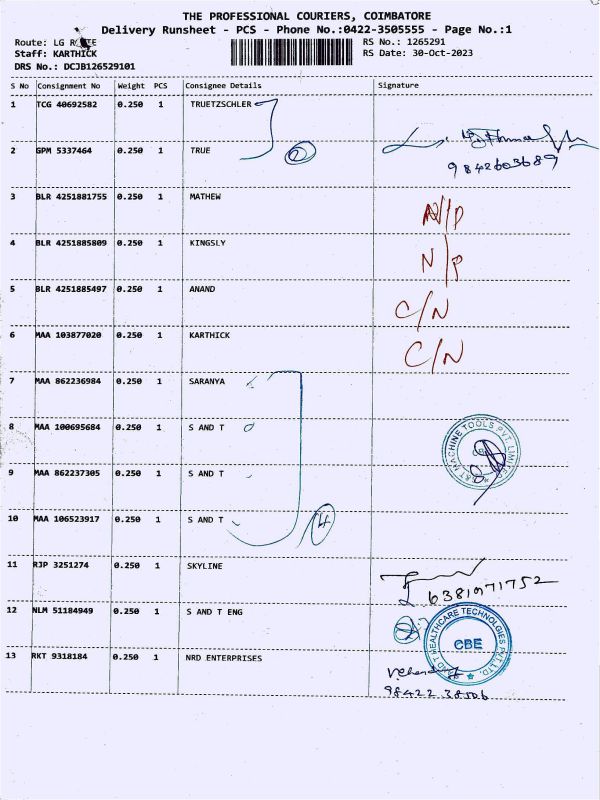 THE PROFESSIONAL COURIERS, COIMBATORE
Delivery Runsheet - PCS - Phone No.:0422-3505555 - Page No.:1
Route: LG ROUTE RS No.: 1265291
Staff: KARTHICK RS Date: 30-Oct-2023
DRS No.: DCJB126529101
S No Consignment No Weight PCS Consignee Details Signature
1 TCG 40692582 0.250 1 TRUETZSCHLER
2 GPM 5337464 0.250 1 TRUE 2
9842603689
3 BLR 4251881755 0.250 1 MATHEW N/P
4 BLR 4251885809 0.250 1 KINGSLY N/P
5 BLR 4251885497 0.250 1 ANAND C/N
6 MAA 103877020 0.250 1 KARTHICK C/N
7 MAA 862236984 0.250 1 SARANYA
8 MAA 100695684 0.250 1 S AND T
MACHINE TOOLS PVT. LIMITED
CBE
9 MAA 862237305 0.250 1 S AND T
10 MAA 106523917 0.250 1 S AND T 4
11 RJP 3251274 0.250 1 SKYLINE
6381971752
12 NLM 51184949 0.250 1 S AND T ENG
HEALTHCARE TECHNOLGIES PVT. LTD.
CBE
13 RKT 9318184 0.250 1 NRD ENTERPRISES
98422 38506